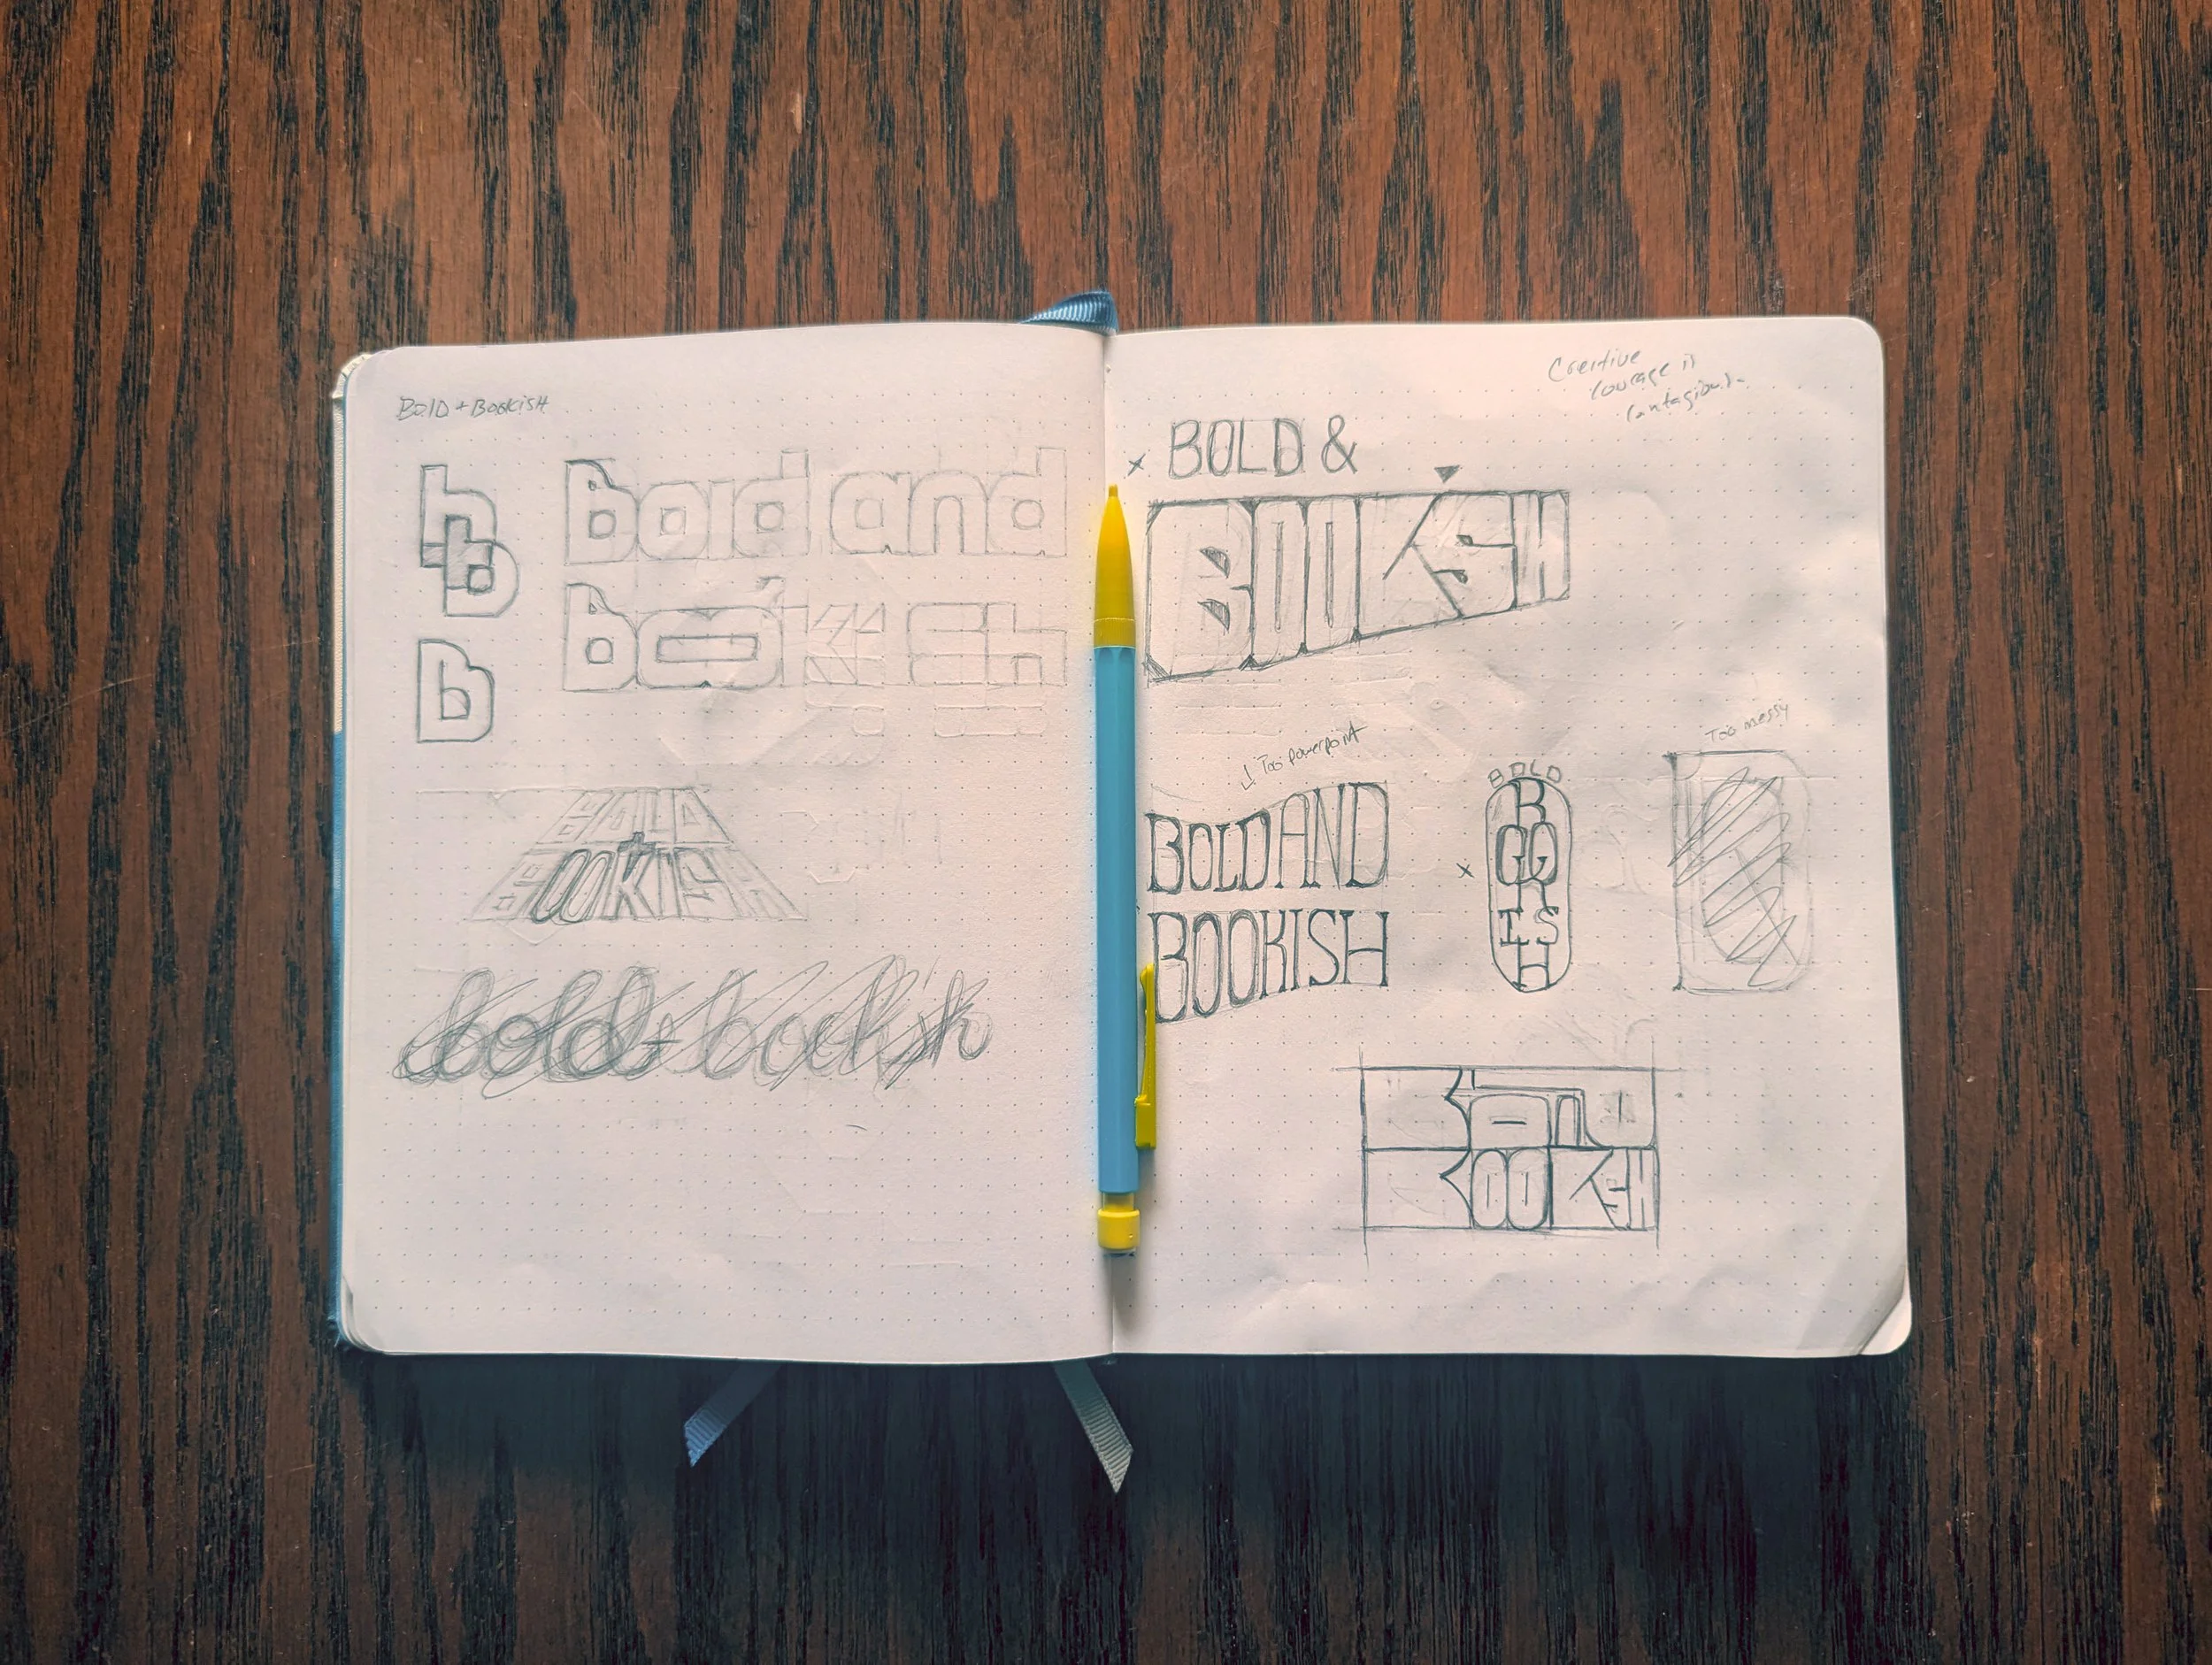 Bold + Bookish
b
b
B
Bold and
Bookish
BOLD
BOOKISH
bold + bookish
Creative
courage is
contagious.
x BOLD &
BOOKISH
↓ Too powerpoint
BOLD AND
BOOKISH
BOLD
x
B
OO
K
IS
H
Too messy
BOLD
BOOKISH